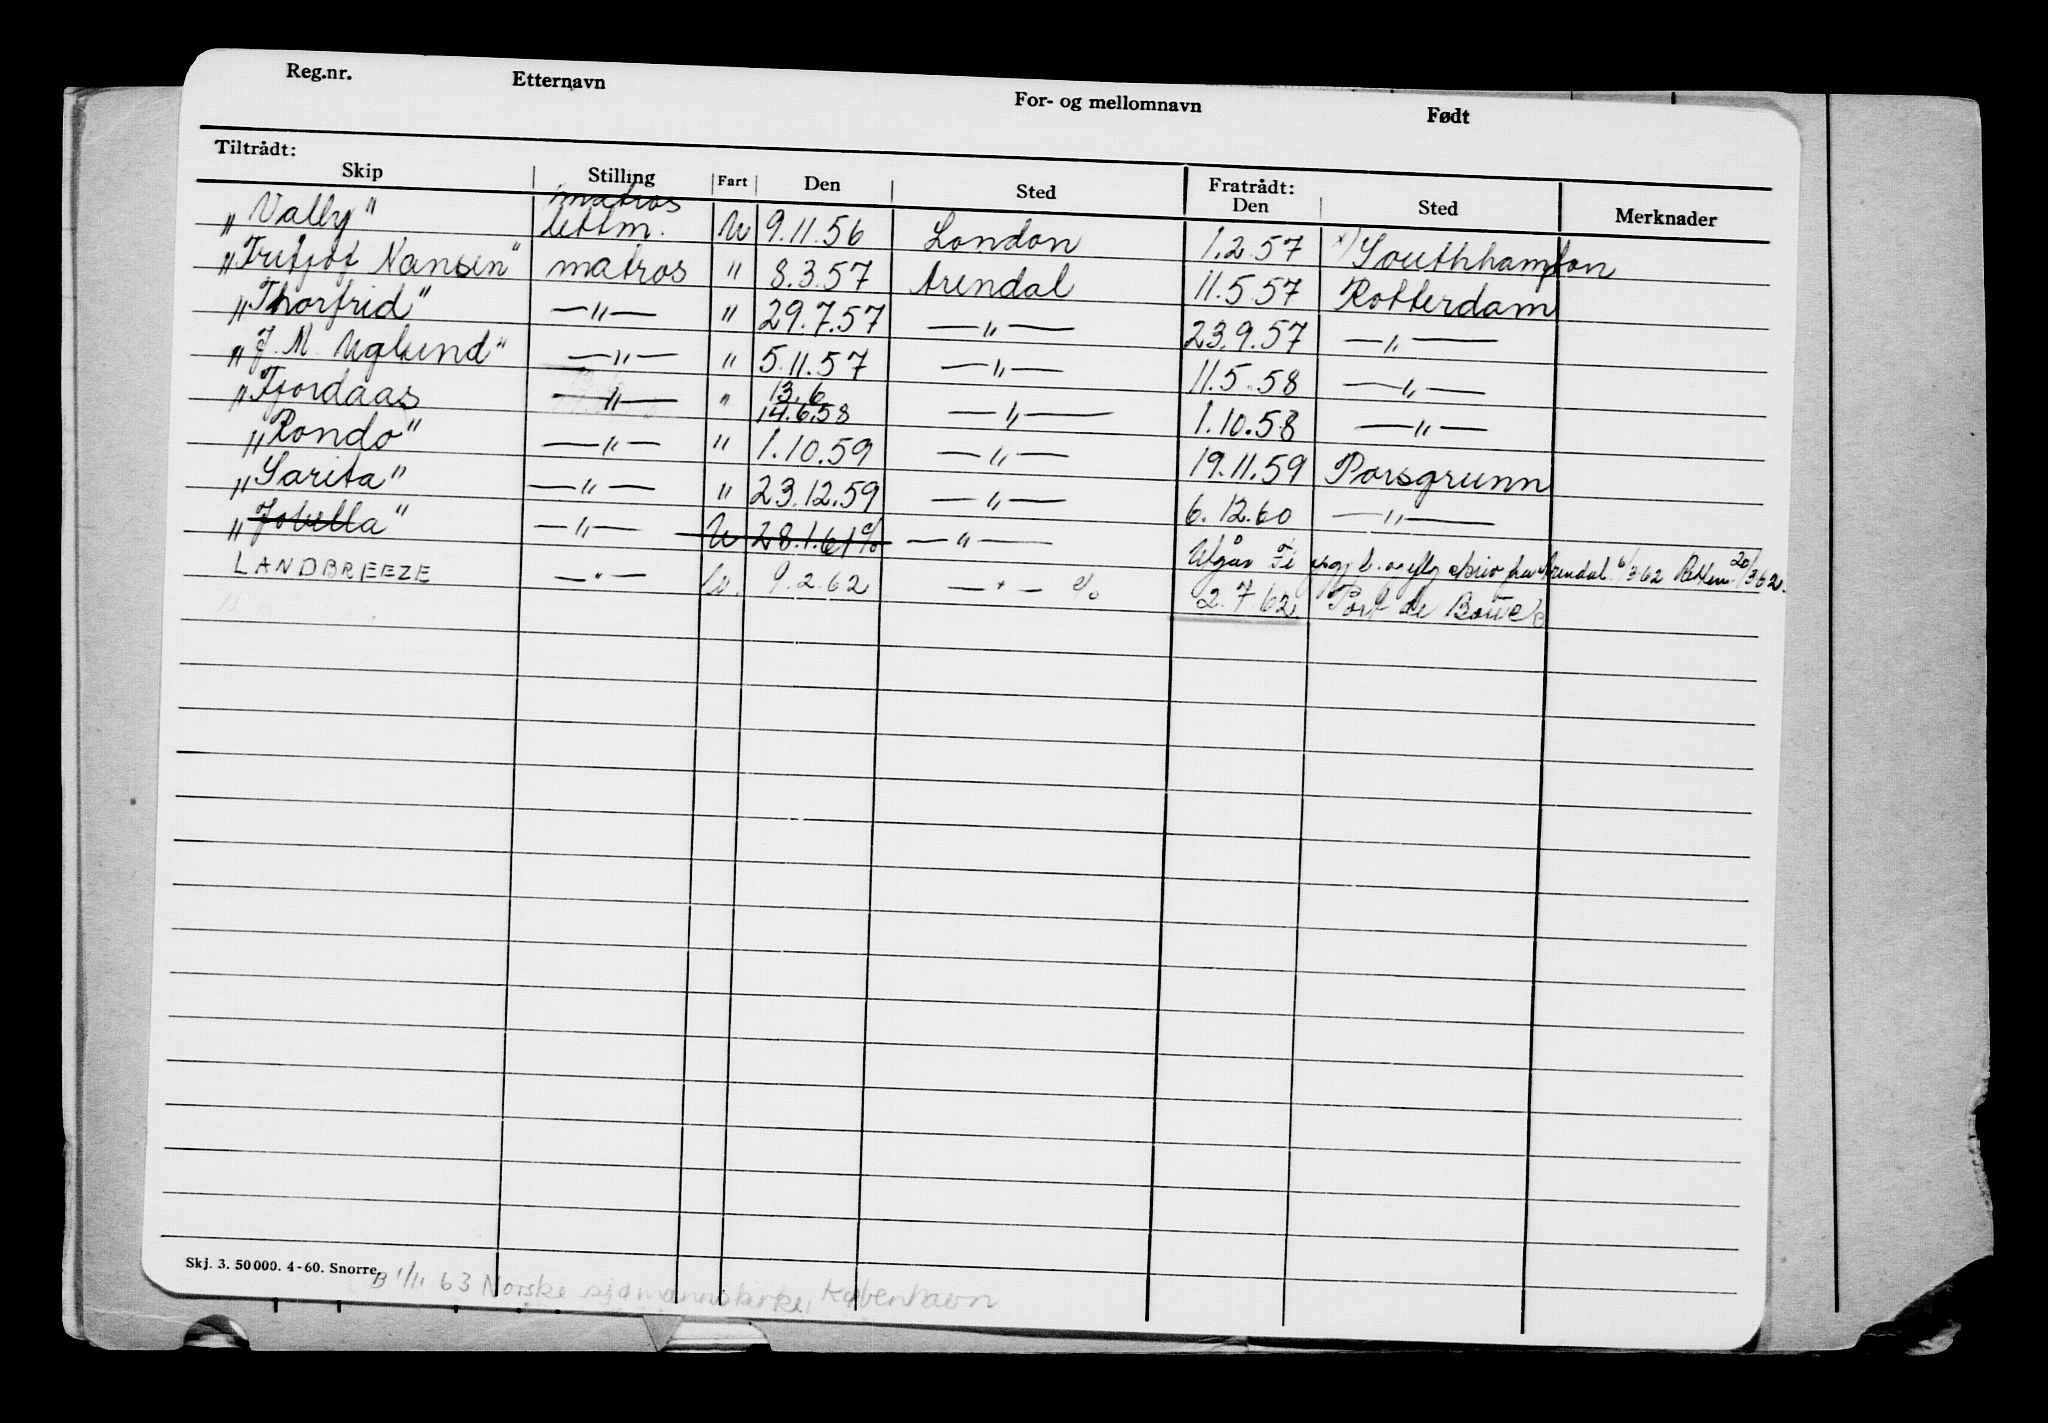 Reg.nr. Etternavn For- og mellomnavn Født
Tiltrådt: Fratrådt:
Skip Stilling Fart Den Sted Den Sted Merknader
matros
„Vally" lettm. U 9.11.56 London 1.2.57 x) Southhampton
„Fritjof Nansen" matros " 8.3.57 Arendal 11.5.57 Rotterdam
„Thorfrid" —„— " 29.7.57 —„— 23.9.57 —„—
„J. M. Uglund" —„— " 5.11.57 —„— 11.5.58 —„—
13.6
„Fjordaas —„— " 14.6.58 —„— 1.10.58 —„—
„Rondo" —„— " 1.10.59 —„— 19.11.59 Porsgrunn
„Sarita" —„— " 23.12.59 —„— 6.12.60 —„—
„Jobella" —„— U 28.1.61 % —„— Utgår fra Arendal 6/3 62 20/3 62.
LANDBREEZE —"— U. 9.2.62 —"— % 2.7.62. Port de Bouc
Skj. 3. 50 000. 4-60. Snorre.
B 1/11 63 Norske sjømannskirke, København